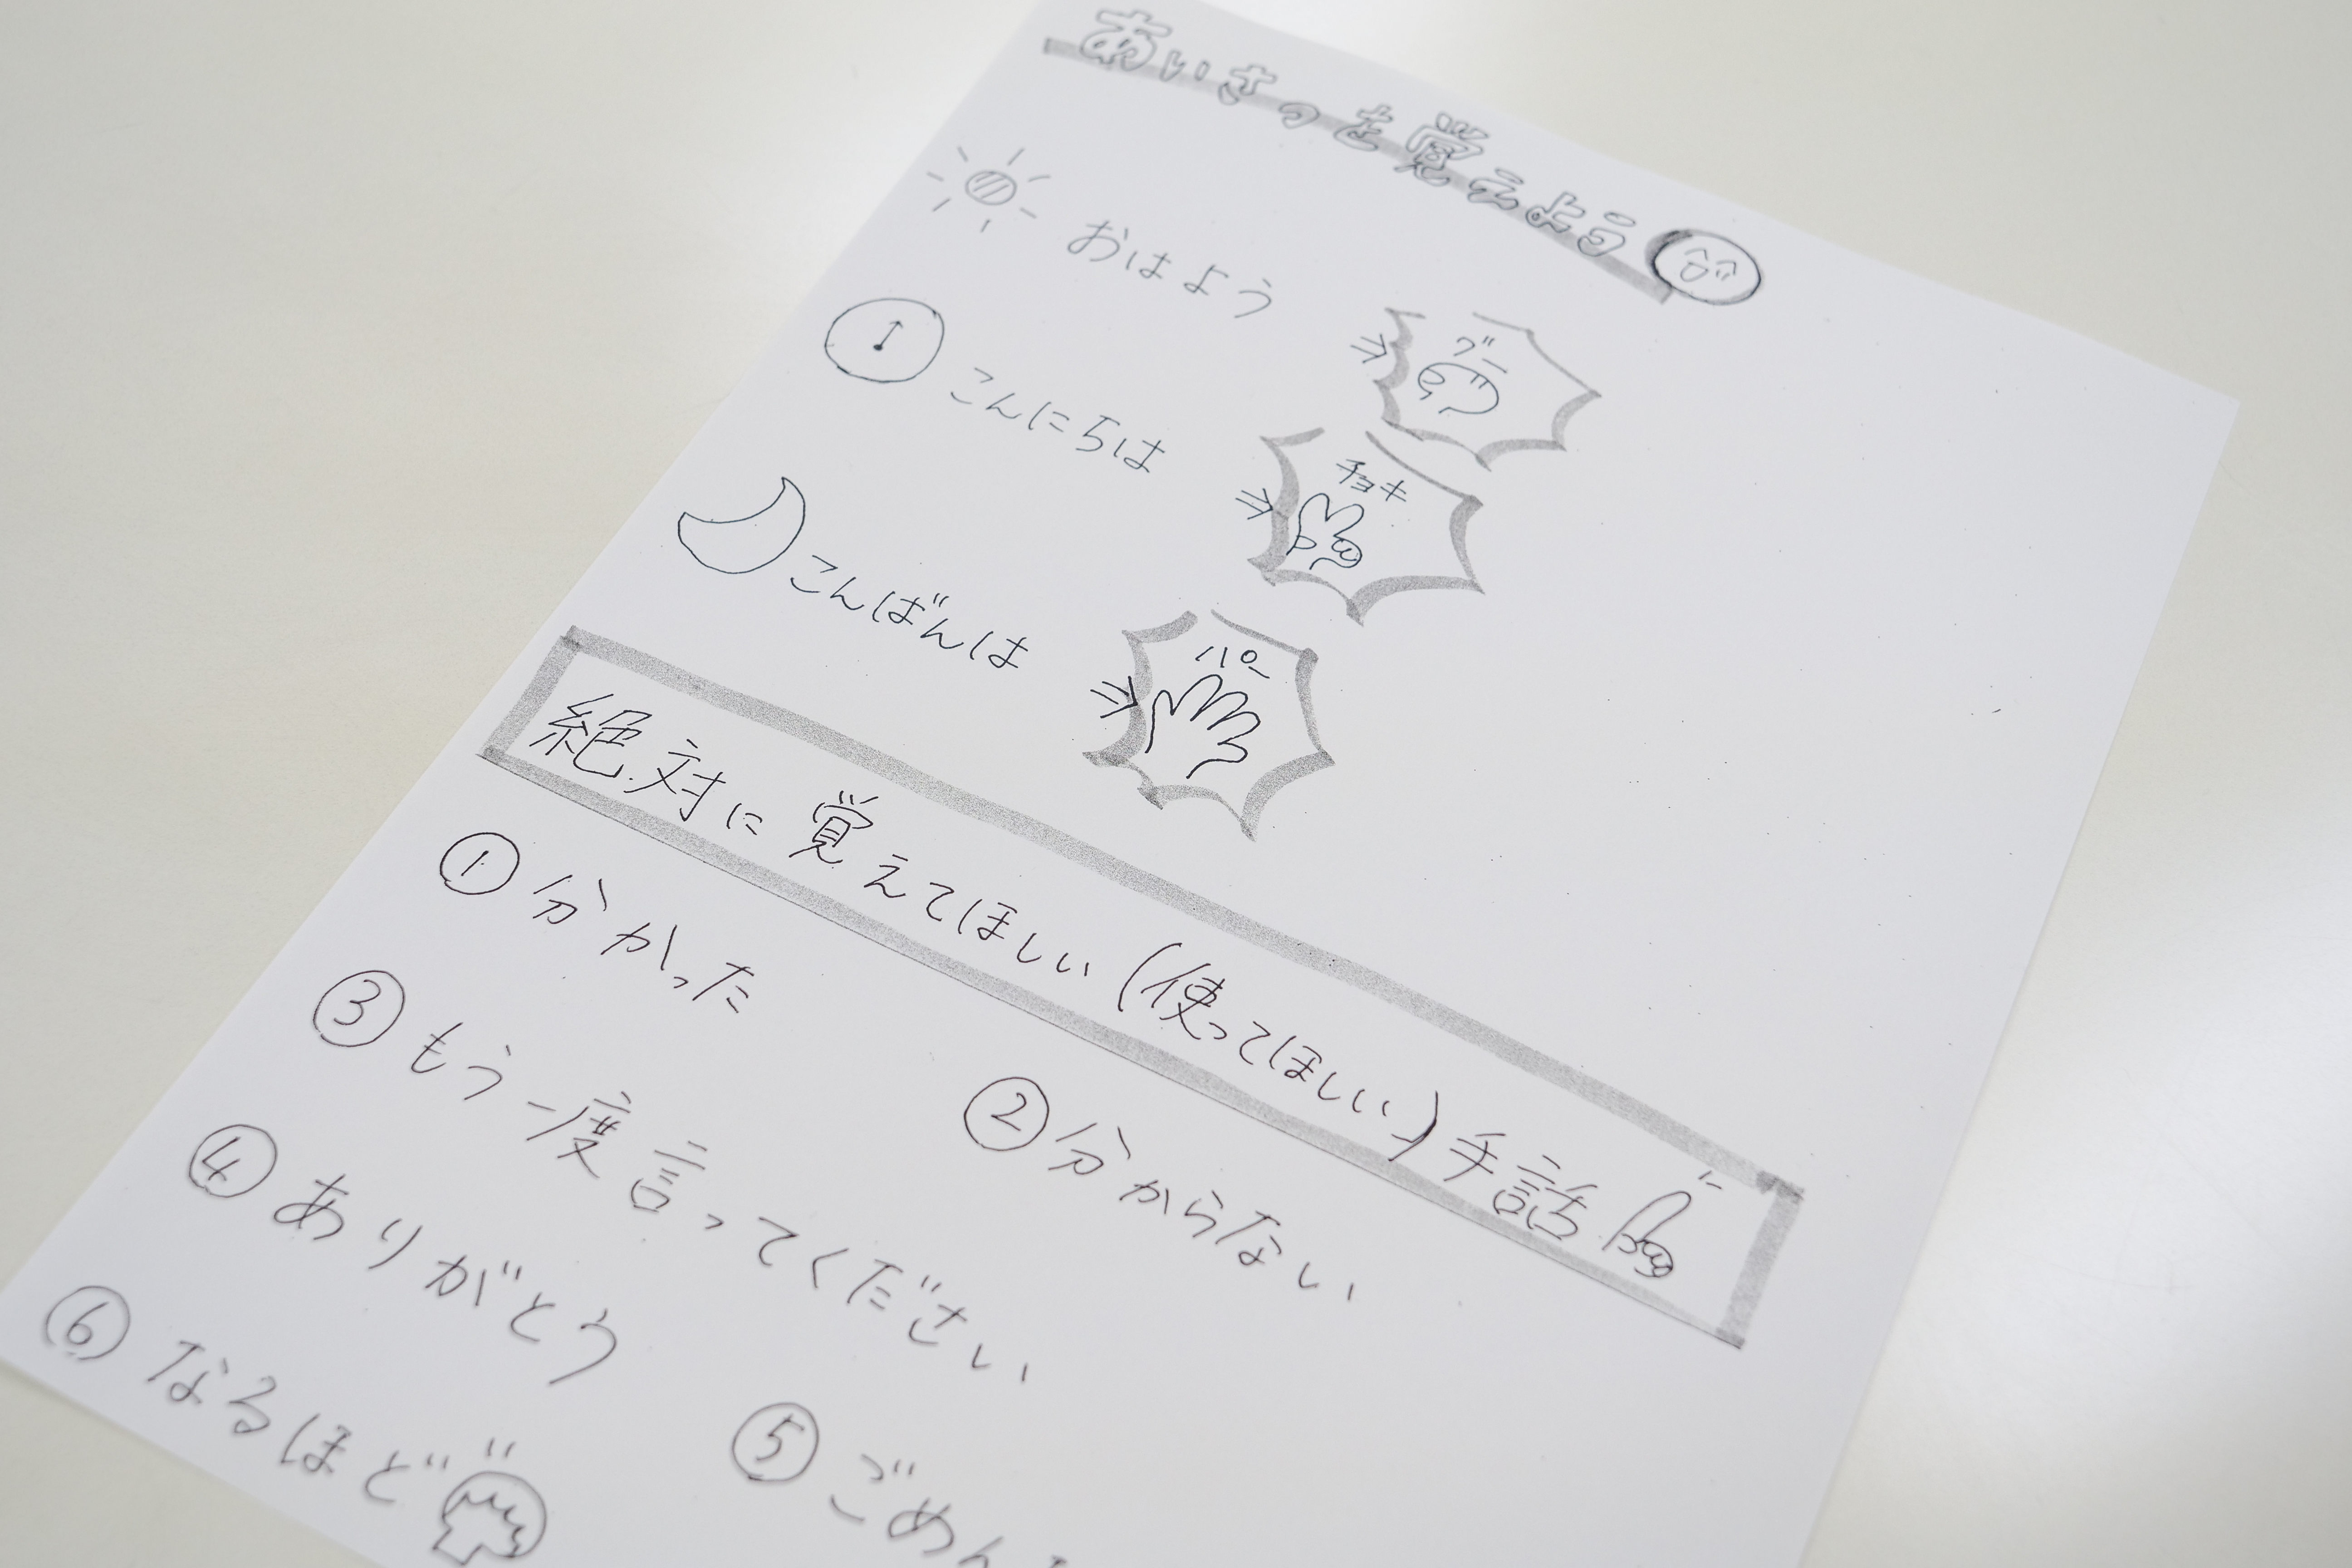 あいさつを覚えよう
おはよう ⇒ グー
こんにちは ⇒ チョキ
こんばんは ⇒ パー
絶対に覚えてほしい(使ってほしい)手話
① 分かった
② 分からない
③ もう一度言ってください
④ ありがとう
⑤ ごめん
⑥ なるほど